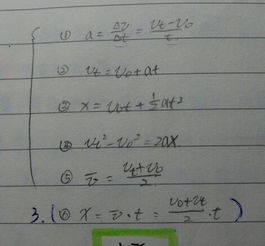 ① a = Δv/Δt = (vt-v0)/t
② vt = v0 + at
③ x = v0t + ½at²
④ vt² - v0² = 2ax
⑤ v̄ = (vt+v0)/2
3. (⑥ x = v̄·t = (v0+vt)/2 · t)